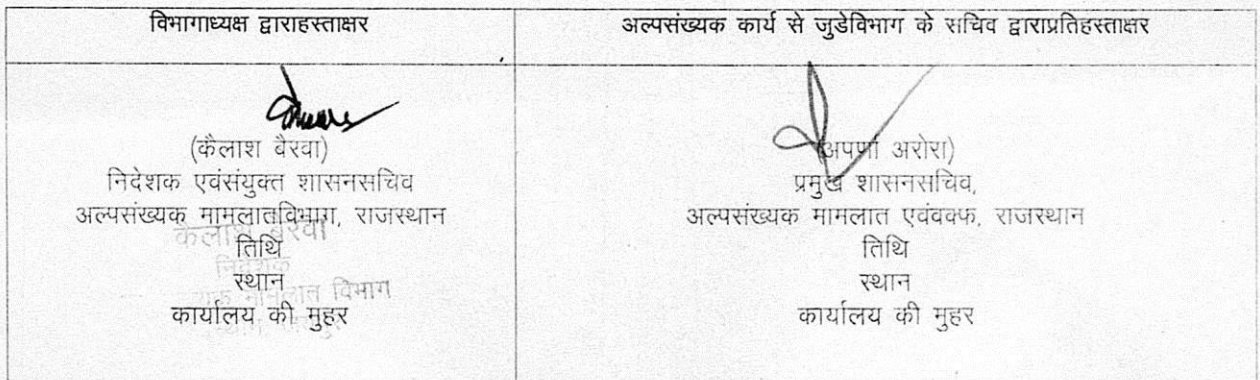 विभागाध्यक्ष द्वाराहस्ताक्षर
अल्पसंख्यक कार्य से जुडेविभाग के सचिव द्वाराप्रतिहस्ताक्षर
(कैलाश बैरवा)
निदेशक एवंसंयुक्त शासनसचिव
अल्पसंख्यक मामलातविभाग, राजस्थान
कैलाश बैरवा
तिथि
निदेशक
स्थान
मामलात विभाग
कार्यालय की मुहर
(अपर्णा अरोरा)
प्रमुख शासनसचिव,
अल्पसंख्यक मामलात एवंवक्फ, राजस्थान
तिथि
स्थान
कार्यालय की मुहर